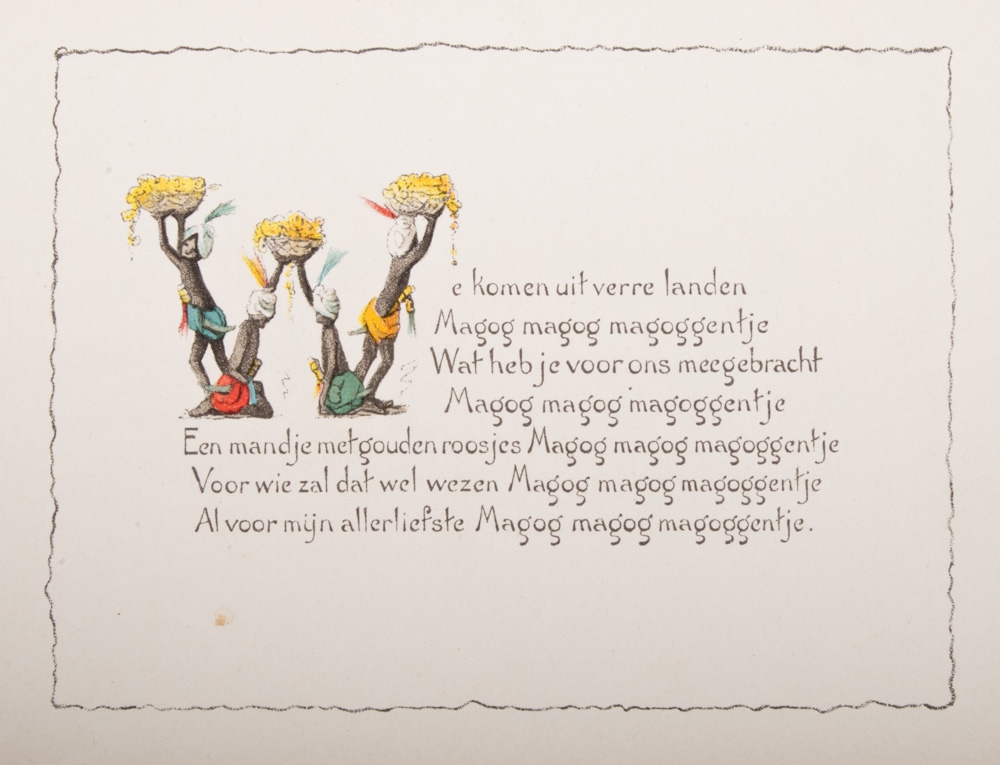 We komen uit verre landen
Magog magog magoggentje
Wat heb je voor ons meegebracht
Magog magog magoggentje
Een mandje met gouden roosjes Magog magog magoggentje
Voor wie zal dat wel wezen Magog magog magoggentje
Al voor mijn allerliefste Magog magog magoggentje.